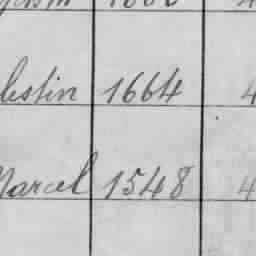 lestin 1664 4
Marcel 1548 4